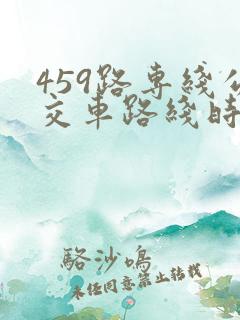 459路專綫公
交車路綫時
駱沙鳴
未经同意禁止转载